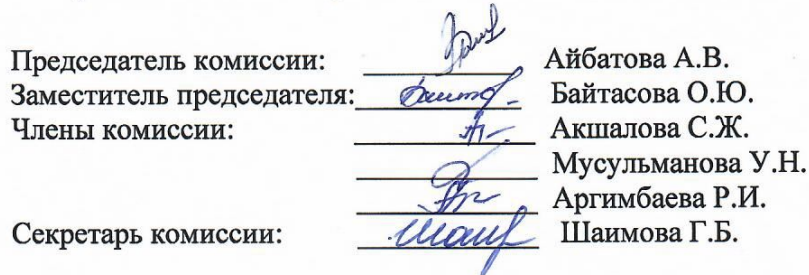 Председатель комиссии: Айбатова А.В.
Заместитель председателя: Байтасова О.Ю.
Члены комиссии: Акшалова С.Ж.
Мусульманова У.Н.
Аргимбаева Р.И.
Секретарь комиссии: Шаимова Г.Б.